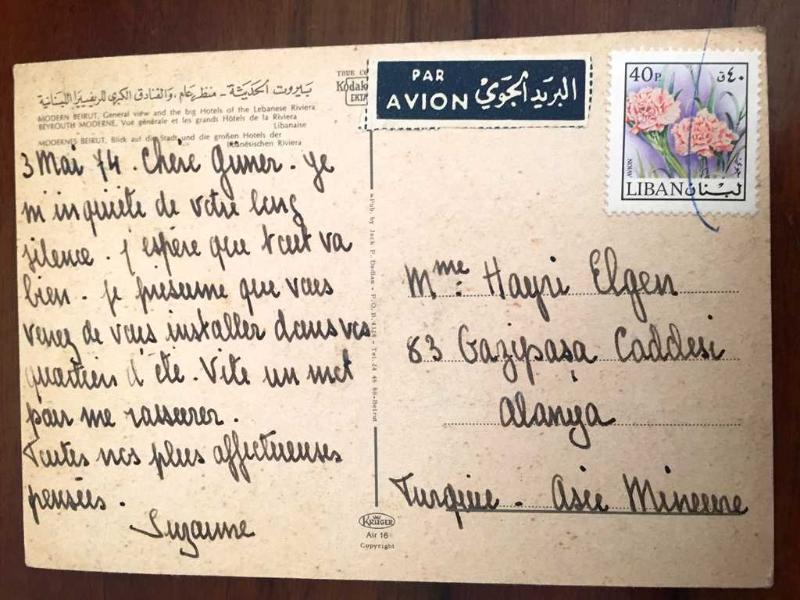 بيروت الحديثة - منظر عام، والفنادق الكبرى للريفييرا اللبنانية
MODERN BEIRUT, General view and the big Hotels of the Lebanese Riviera
BEYROUTH MODERNE, Vue générale et les grands Hôtels de la Riviera
Libanaise
MODERNES BEIRUT, Blick auf die Stadt und die großen Hotels der
Libanesischen Riviera
3 Mai 74. Chère Güner. Je
m'inquiète de votre long
silence. J'espère que tout va
bien. Je présume que vous
venez de vous installer dans vos
quartiers d'été. Vite un mot
pour me rassurer.
Toutes nos plus affectueuses
pensées.
Suzanne
TRUE
Kodak
EKTA
PAR
AVION
البريد الجوي
40P
٤٠ق
AVION
LIBAN لبنان
Pub. by Jack P. Dadian - P.O.B. - Tel. 24 46 86 - Beirut
Mme: Hayri Elgen
83 Gazipaşa Caddesi
Alanya
Turquie - Asie Mineure
KRÜGER
Air 16
Copyright